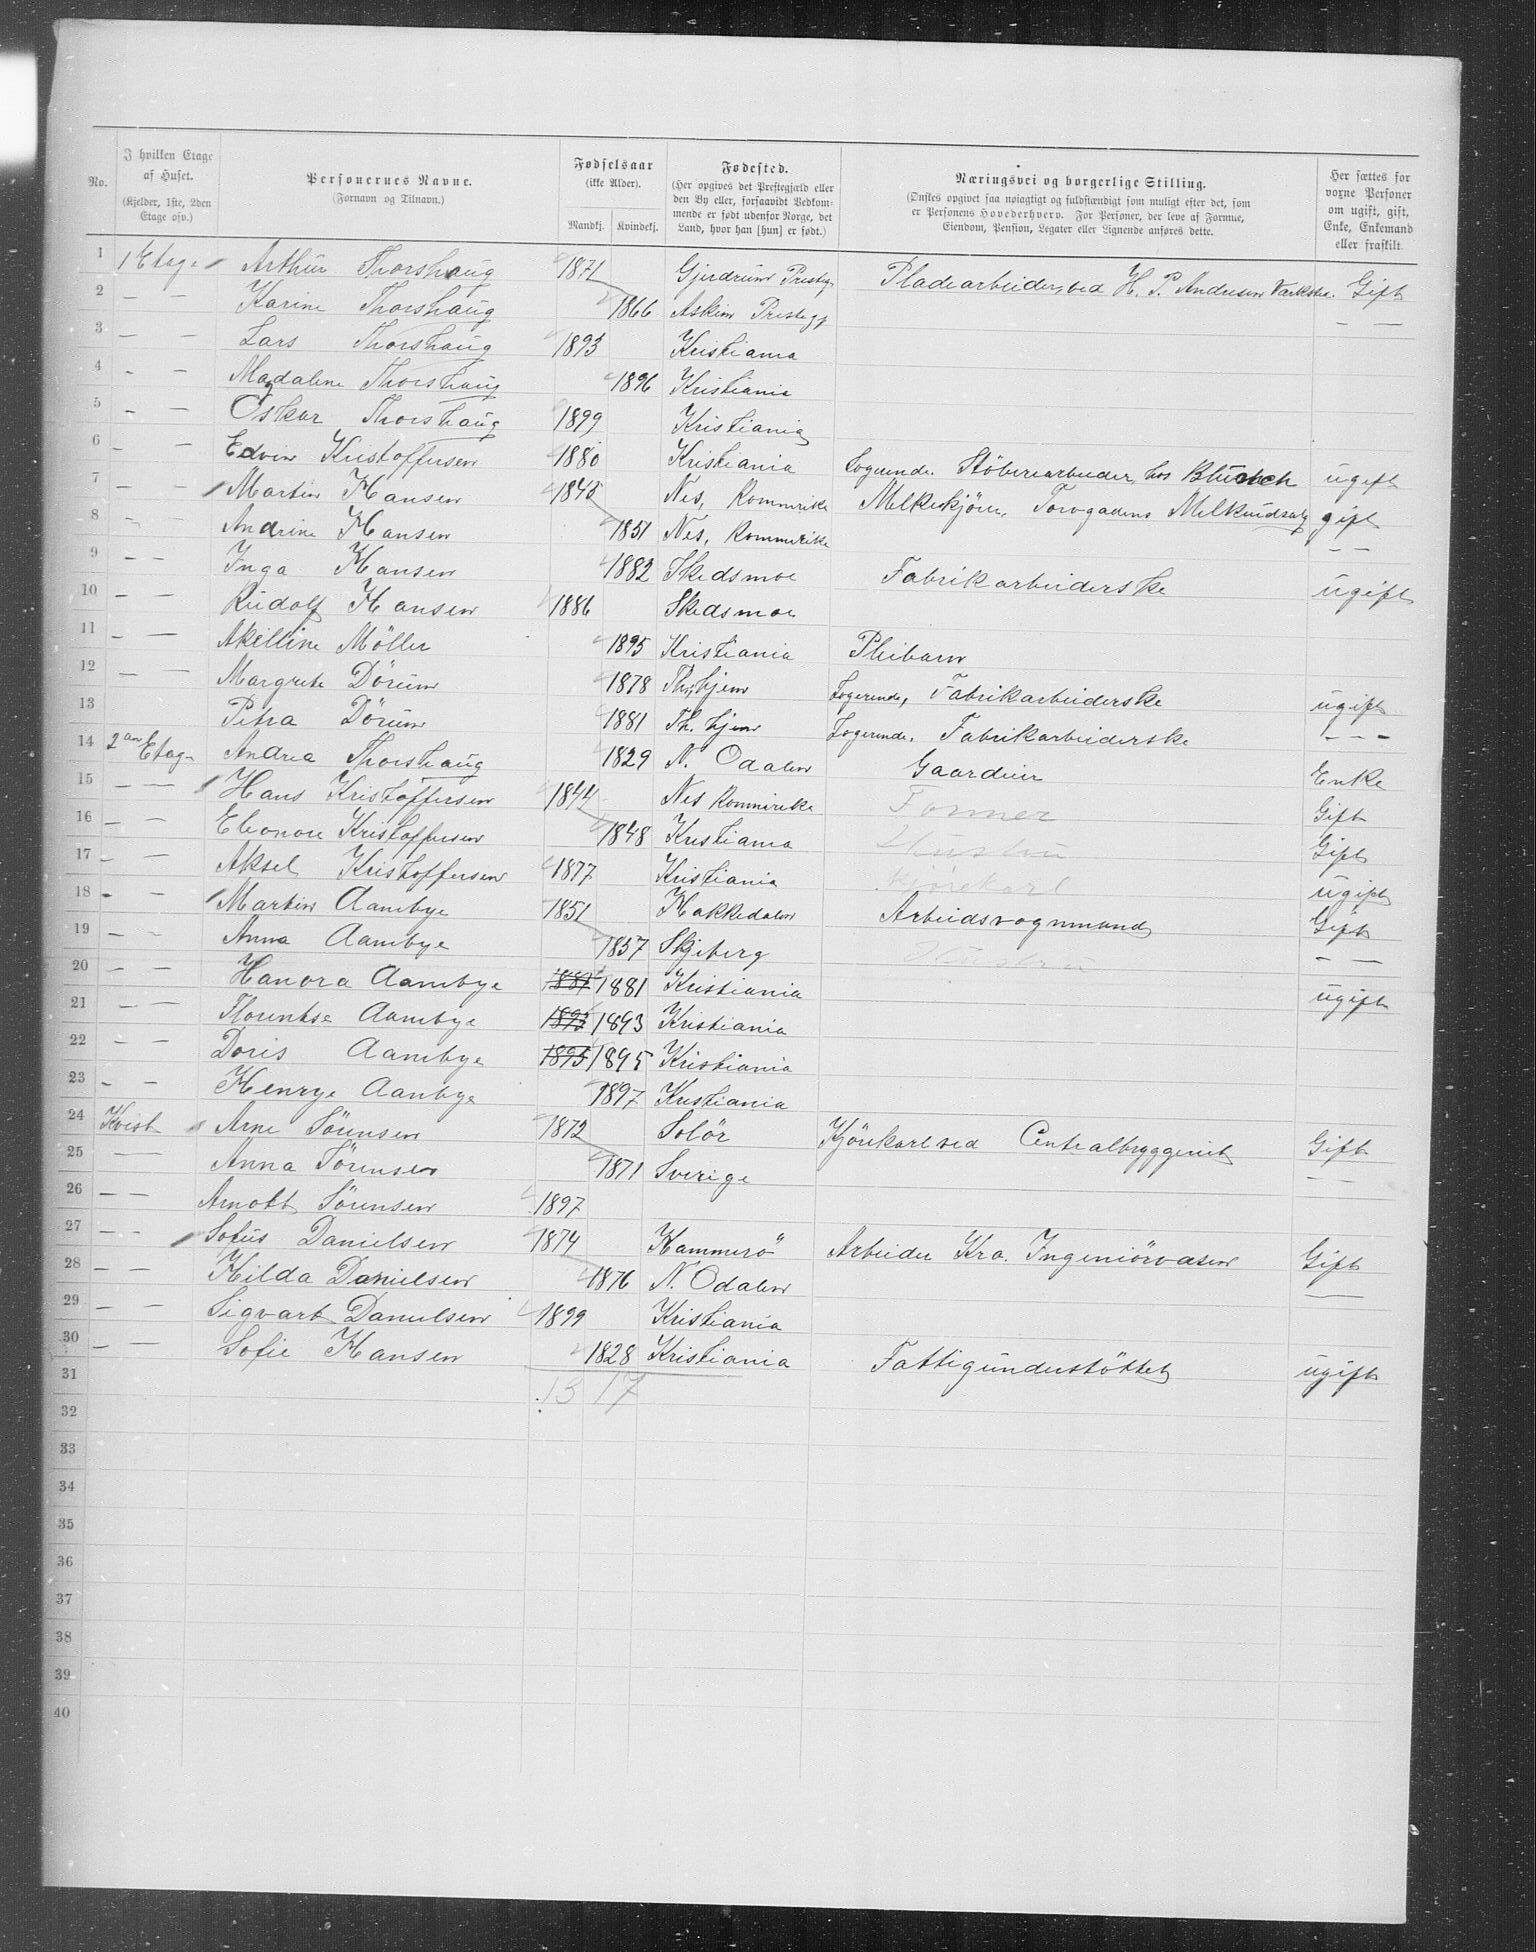 No. I hvilken Etage af Huset. (Kjelder, 1ste, 2den Etage osv.) Personernes Navne. (Fornavn og Tilnavn.) Fødselsaar (ikke Alder). Mandkj. Kvindekj. Fødested. (Her opgives det Præstegjæld eller den By eller, forsaavidt Vedkommende er født udenfor Norge, det Land, hvor han [hun] er født.) Næringsvei og borgerlige Stilling. (Ønskes opgivet saa nøiagtigt og fuldstændigt som muligt efter det, som er Personens Hovederhverv. For Personer, der leve af Formue, Eiendom, Pension, Legater eller Lignende anføres dette. Her sættes for voxne Personer om ugift, gift, Enke, Enkemand eller fraskilt.
1 1 Etage Arthur Thorshaug 1871 Gjerdrum Presteg. Pladearbeider, ved H. P. Andresen Gift
2 — — Karine Thorshaug 1866 Askim Prestegj — —
3 — — Lars Thorshaug 1893 Kristiania
4 - — Magdalene Thorshaug 1896 Kristiania
5 - — Oskar Thorshaug 1899 Kristiania
6 - — Edvin Kristoffersen 1880 Kristiania Logerende. Stöberiarbeider, hos ugift
7 - — Martin Hansen 1845 Nes, Rommerike Melkekjörer, Torvgadens Melkeudsalg gift
8 - - Andrine Hansen 1851 Nes, Rommerike — —
9 — — Inga Hansen 1882 Skedsmoe Fabrikarbeiderske ugift
10 — — Rudolf Hansen 1886 Skedsmoe
11 - — Akilline Möller 1895 Kristiania Pleibarn
12 — — Margrete Dörum 1878 Logerende, Fabrikarbeiderske ugift
13 Petra Dörum 1881 Logerende, Fabrikarbeiderske - - -
14 2den Etage Andrea Thorshaug 1829 N. Odalen Gaardeier Enke
15 — — Hans Kristoffersen 1844 Nes Rommerike Former Gift
16 — — Eleonore Kristoffersen 1848 Kristiania Hustru Gift
17 - — Aksel Kristoffersen 1877 Kristiania Kjörekarl ugift
18 - - Martin Aambye 1851 Hakkedalen Arbeidsvognmand Gift
19 — - Anna Aambye 1857 Skjeberg Hustru — —
20 — — Hanora Aambye 1881 Kristiania ugift
21 — — Florentse Aambye 1893 1893 Kristiania
22 — — Doris Aambye 1895 1895 Kristiania
23 - — Henrye Aambye 1897 Kristiania
24 Kvist Arne Sörensen 1872 Solör Kjörekarl ved Centralbryggeriet Gift
25 — — Anna Sörensen 1871 Sverige — —
26 — — Arnolt Sörensen 1897
27 — - Sofus Danielsen 1874 Hammerö Arbeider Kra. Ingeniörvæsen Gift
28 — — Hilda Danielsen 1876 N. Odalen —
29 — — Sigvart Danielsen 1899 Kristiania
30 — — Sofie Hansen 1828 Kristiania Fattigunderstöttet ugift
31 13 17
32
33
34
35
36
37
38
39
40